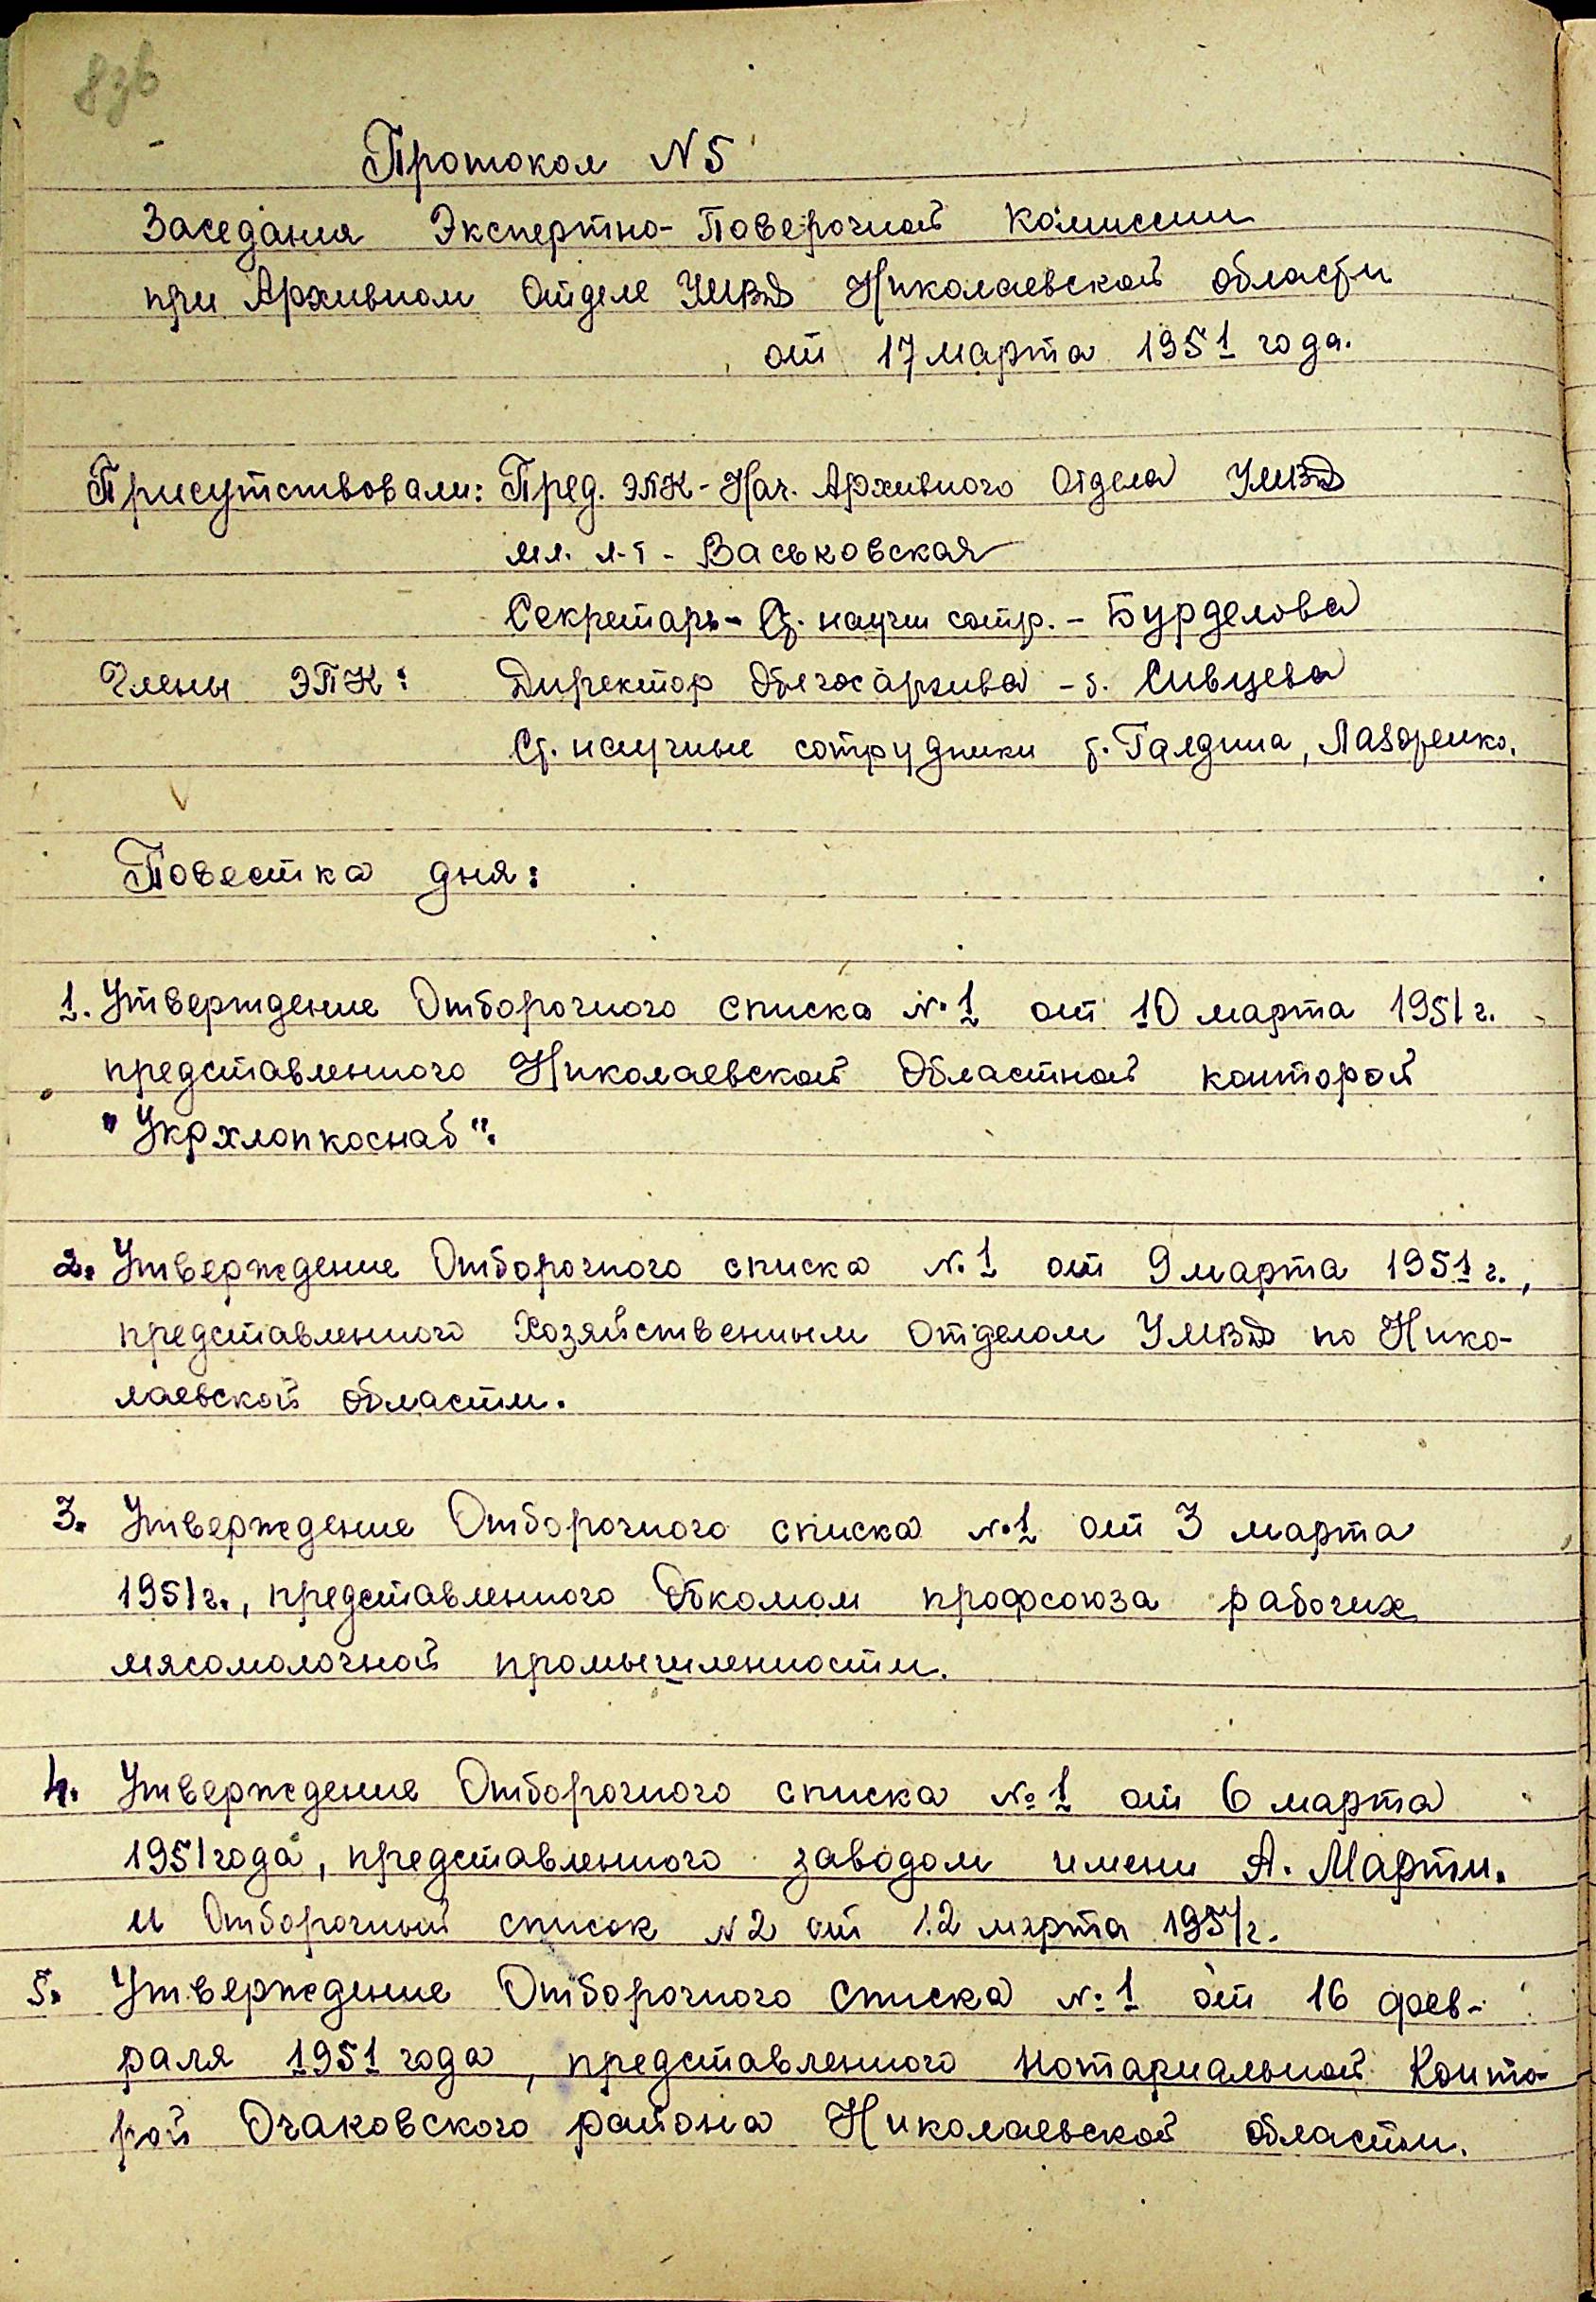 83б
Протокол N 5
Заседания Экспертно-Поверочной Комиссии
при Архивном Отделе УМВД Николаевской области
от 17 марта 1951 года.
Присутствовали: Пред. ЭПК - Нач. Архивного Отдела УМВД
мл. л-т - Васьковская
Секретарь - Ст. научн сотр. - Бурделова
Члены ЭПК: Директор Облгосархива - т. Сивцева
Ст. научные сотрудники т. Галдина, Лазоренко.
Повестка дня:
1. Утверждение Отборочного списка №1 от 10 марта 1951 г.
представленного Николаевской Областной конторой
"Укрхлопкоснаб".
2. Утверждение Отборочного списка №1 от 9 марта 1951 г.,
представленного Хозяйственным отделом УМВД по Нико-
лаевской области.
3. Утверждение Отборочного списка №1 от 3 марта
1951 г., представленного Обкомом профсоюза рабочих
мясомолочной промышленности.
4. Утверждение Отборочного списка №1 от 6 марта
1951 года, представленного заводом имени А. Марти.
и Отборочный список N2 от 12 марта 1951 г.
5. Утверждение Отборочного списка №1 от 16 фев-
раля 1951 года, представленного нотариальной Конто-
рой Очаковского района Николаевской области.